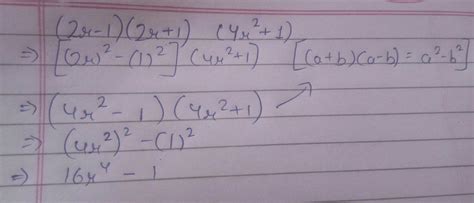 (2x-1)(2x+1) (4x²+1)
⇒ [(2x)²-(1)²] (4x²+1) [(a+b)(a-b) = a²-b²]
⇒ (4x²-1) (4x²+1)
⇒ (4x²)² - (1)²
⇒ 16x⁴ - 1